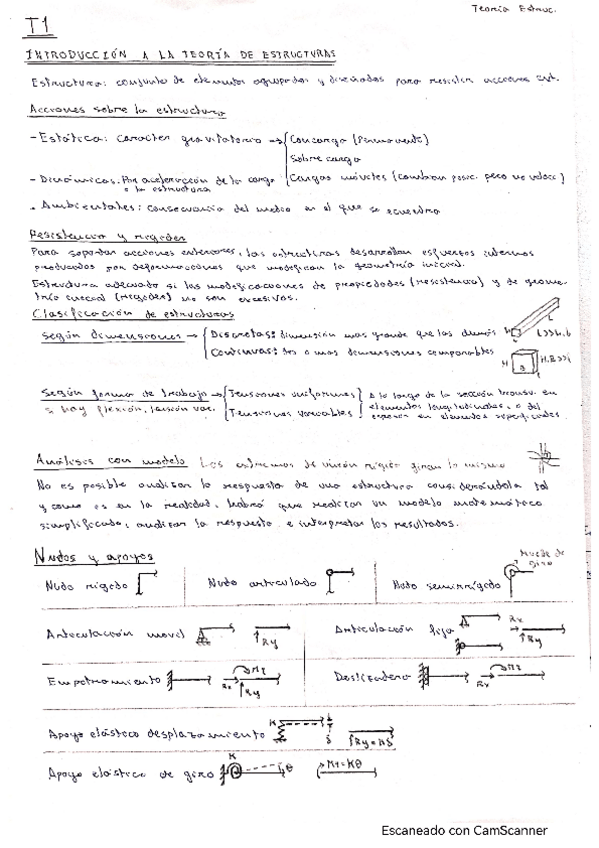 Teoría Estruc.
T1
INTRODUCCIÓN A LA TEORÍA DE ESTRUCTURAS
Estructura: conjunto de elementos agrupados y diseñados para resistir acciones ext.
Acciones sobre la estructura
- Estática: caracter gravitatorio → Concarga (Permanente)
Sobrecarga
- Dinámicas. Por aceleración de la carga Cargas móviles (cambian posic. pero no veloc)
o la estructura
. Ambientales: consecuencia del medio en el que se encuentra
Resistencia y rigidez
Para soportar acciones exteriores, las estructuras desarrollan esfuerzos internos
producidos por deformaciones que modifican la geometría inicial.
Estructura adecuada si las modificaciones de propiedades (resistencia) y de geome-
tría inicial (rigidez) no son excesivas.
Clasificación de estructuras
Según dimensiones → Discretas: dimensión mas grande que las demás
L
Continuas: dos o mas dimensiones comparables
Según forma de trabajo → Tensiones uniformes A lo largo de la sección transv. en
si hay flexión, tensión var. Tensiones variables elementos longitudinales, o del
espesor en elementos superficiales.
Análisis con modelo Los extremos de unión rígida giran lo mismo
No es posible analizar la respuesta de una estructura considerándola tal
y como es en la realidad, habrá que realizar un modelo matemático
simplificado, analizar la respuesta e interpretar los resultados.
Nudos y apoyos
Muelle de
giro
Nudo rígido Nudo articulado Nudo semirrígido
Articulación movil Ry Articulación fija Rx Ry
Empotramiento Rx Ry Deslizadera Rx
Apoyo elástico desplazamiento K δ Ry=Kδ
Apoyo elástico de giro K θ M=Kθ
Escaneado con CamScanner